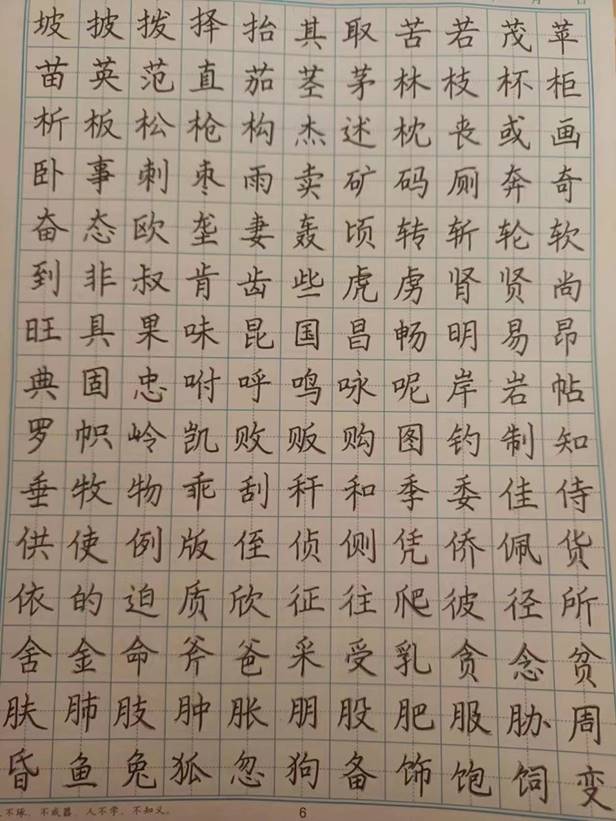 月
坡披拨择抬其取苦若茂苹
苗英范直茄茎茅林枝杯柜
析板松枪构杰述枕丧或画
卧事刺枣雨卖矿码厕奔奇
奋态欧垄妻轰顷转斩轮软
到非叔肯齿些虎虏肾贤尚
旺具果味昆国昌畅明易昂
典固忠咐呼鸣咏呢岸岩帖
罗帜岭凯败贩购图钓制知
垂牧物乖刮秆和季委佳侍
供使例版侄侦侧凭侨佩货
依的迫质欣征往爬彼径所
舍金命斧爸采受乳贪念贫
肤肺肢肿胀朋股肥服胁周
昏鱼兔狐忽狗备饰饱饲变
不琢，不成器。人不学，不知义。 6